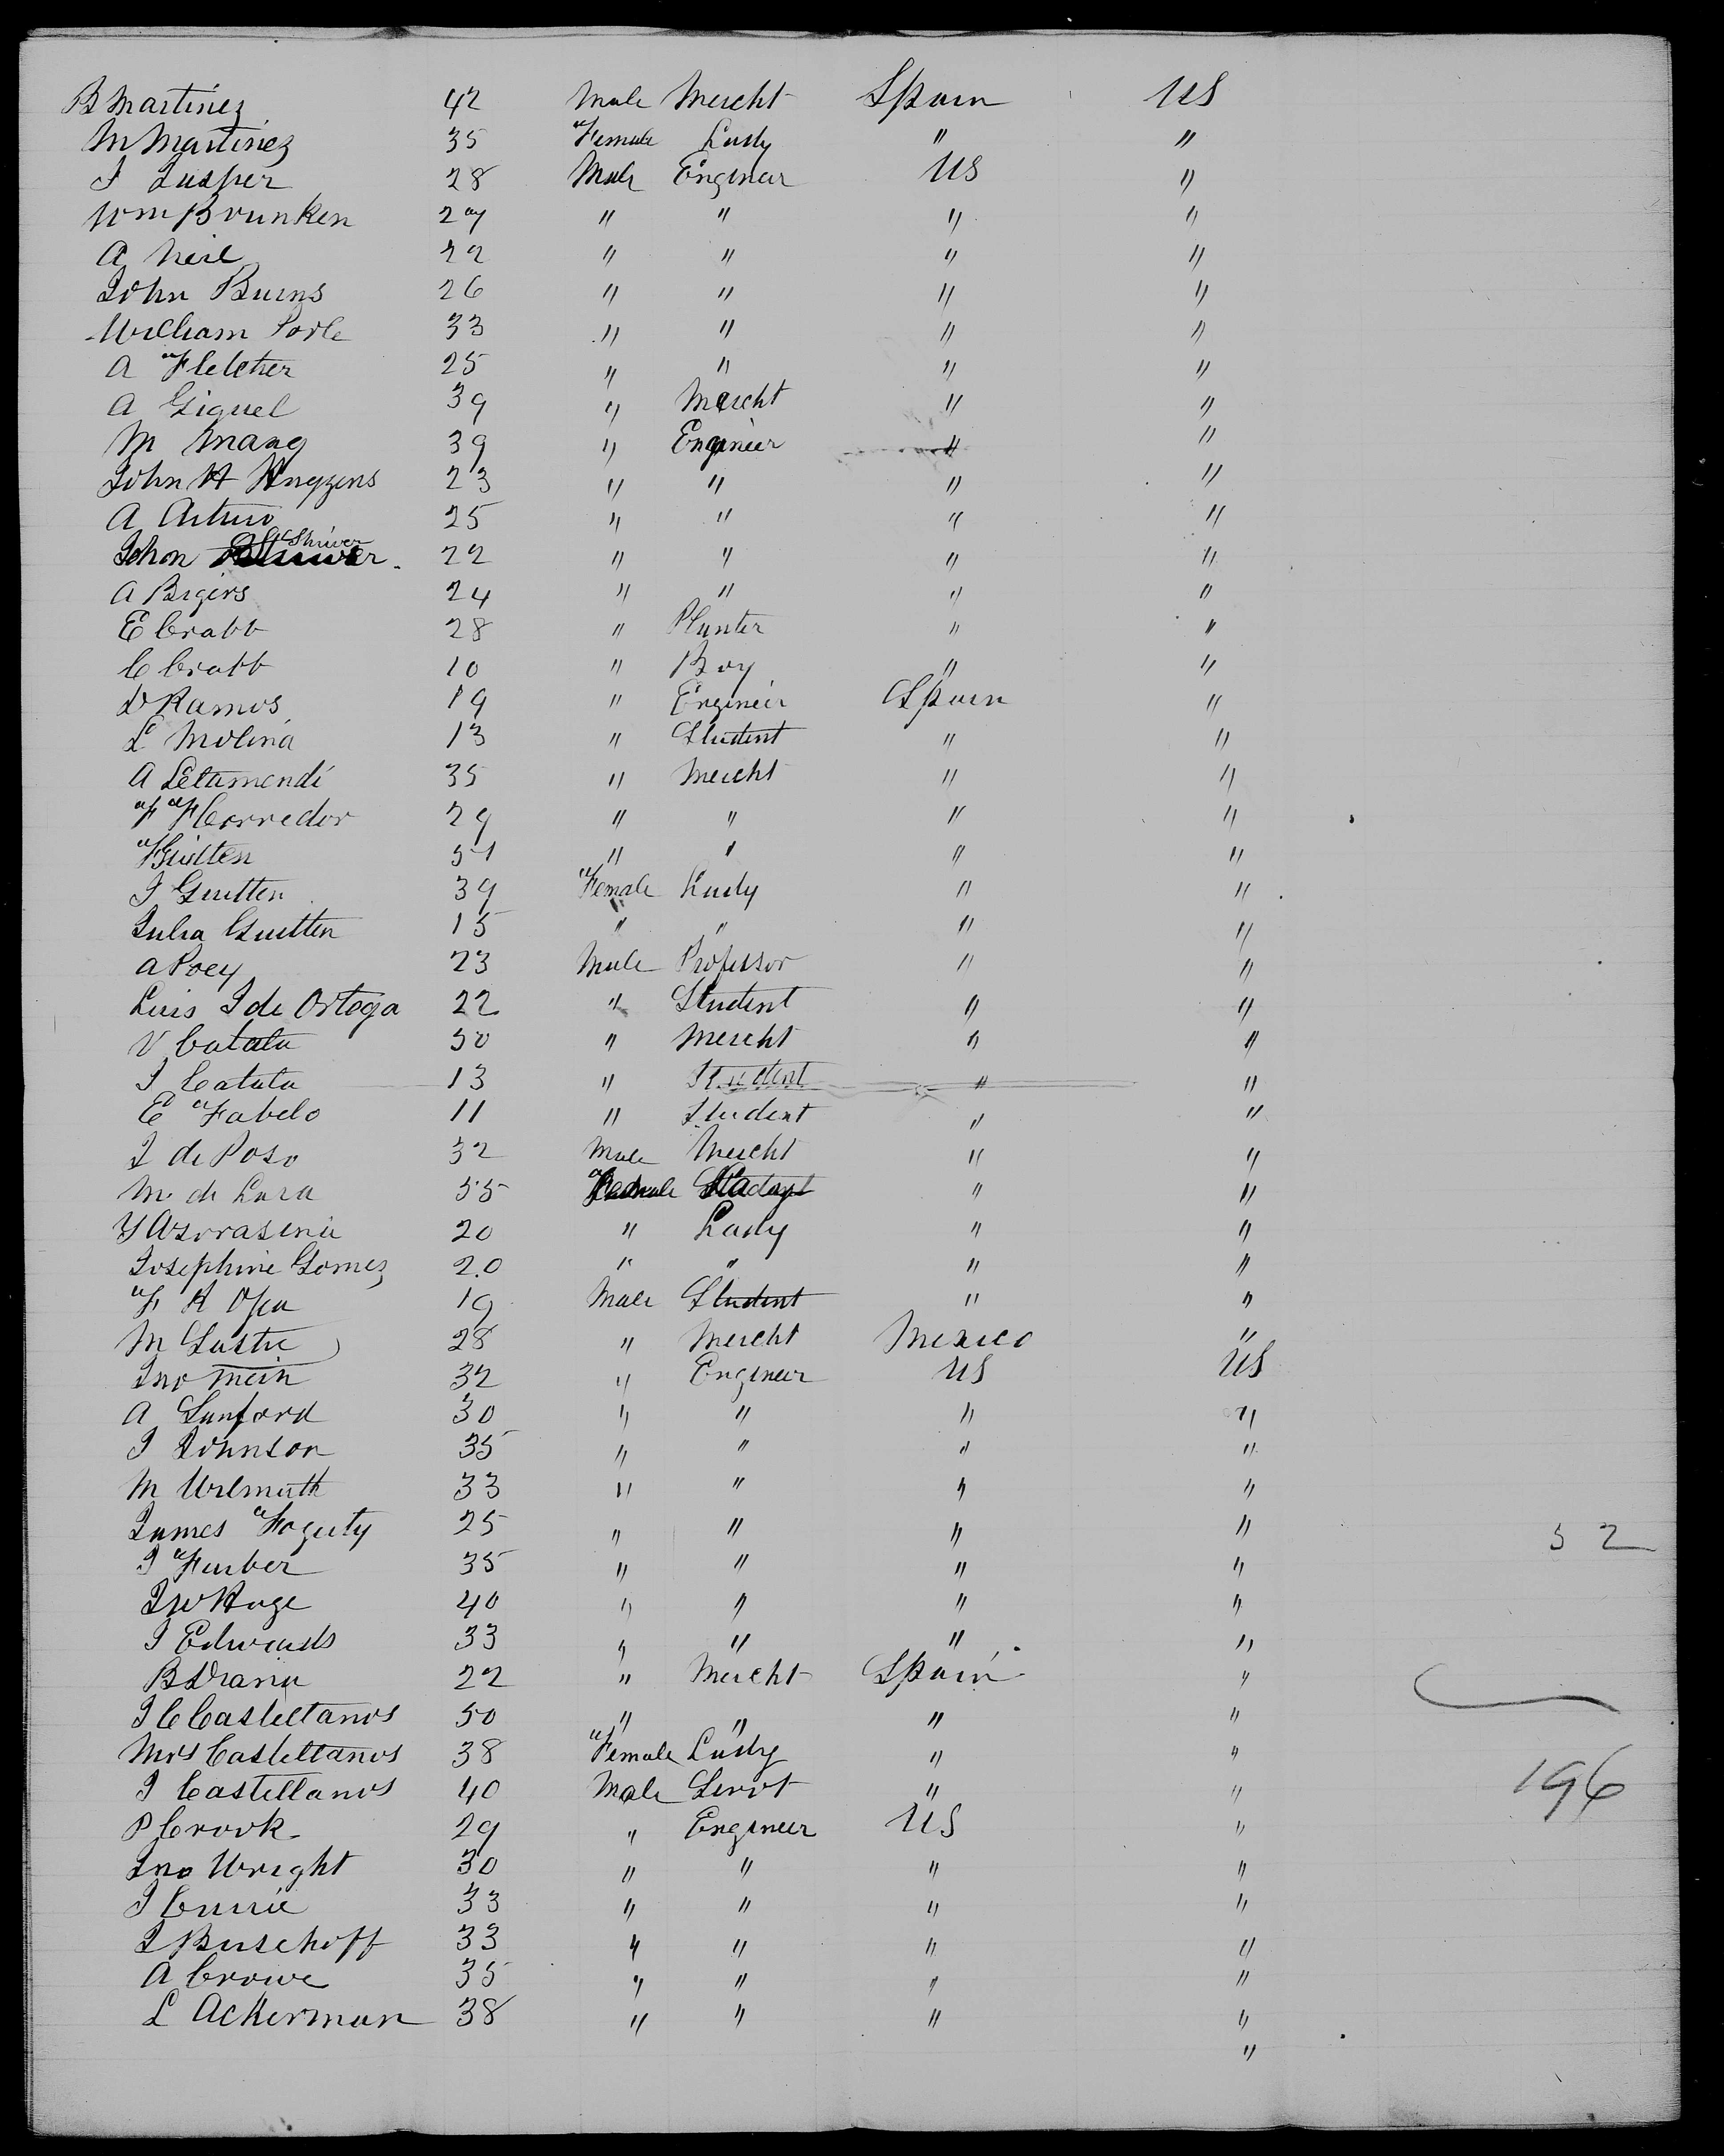 B Martinez 42 Male Mercht Spain US
M Martinez 35 Female Lady " "
J Lusher 28 Male Engineer US "
Wm Brunken 27 " " " "
A Neil 22 " " " "
John Burns 26 " " " "
William Porle 33 " " " "
A Fletcher 25 " " " "
A Giquel 39 " Mercht " "
M Mang 39 " Engineer " "
John H Huyzens 23 " " " "
A Arturo 25 " " " "
Jchon Shriver 22 " " " "
A Bigers 24 " " " "
E Crabb 28 " Planter " "
C Crabb 10 " Boy " "
D Ramos 19 " Engineer Spain "
L Molina 13 " Student " "
A Letamendi 35 " Mercht " "
F F Corredor 29 " " " "
F Guitten 51 " " " "
J Guitten 39 Female Lady " "
Julia Guitten 15 " " " "
A Poey 23 Male Professor " "
Luis J de Ortega 22 " Student " "
V Catala 50 " Mercht " "
J Catala 13 " Student " "
E Fabelo 11 " Student " "
J de Poso 32 Male Mercht " "
M de Lara 55 Female Lady " "
Y Azorasena 20 " Lady " "
Josephine Gomez 20 " " " "
F R Ofea 19 Male Student " "
M Lastre 28 " Mercht Mexico "
Jno Mein 32 " Engineer US US
A Sanford 30 " " " "
J Johnson 35 " " " "
M Wilmuth 33 " " " "
James Foguty 25 " " " "
52
J Furber 35 " " " "
Jno Hage 40 " " " "
J Edwards 33 " " " "
B Drana 22 " Mercht Spain "
J C Castellanos 50 " " " "
Mrs Castellanos 38 Female Lady " "
J Castellanos 40 Male Servt " "
196
P Crook 29 " Engineer US "
Jno Wright 30 " " " "
J Currie 33 " " " "
J Buschoff 33 " " " "
A Crowe 35 " " " "
L Ackerman 38 " " " "
"